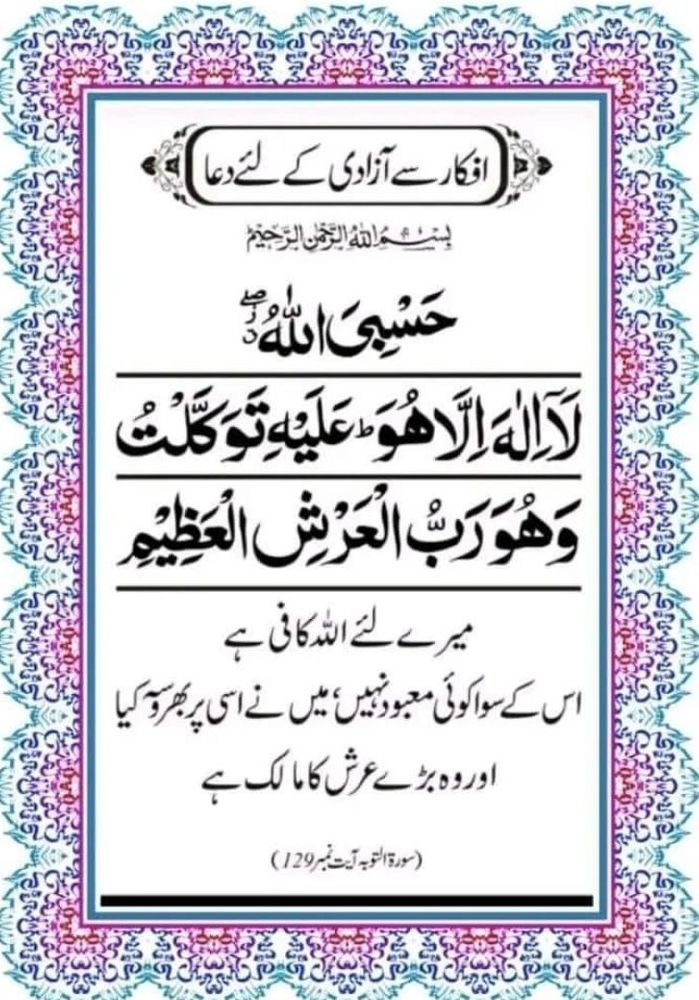 افکار سے آزادی کے لئے دعا
بِسْمِ اللهِ الرَّحْمٰنِ الرَّحِيْمِ
حَسْبِیَ اللّٰهُ ۖ ز
لَآ اِلٰهَ اِلَّا هُوَ ؕ عَلَيْهِ تَوَكَّلْتُ
وَهُوَ رَبُّ الْعَرْشِ الْعَظِيْمِ
میرے لئے اللہ کافی ہے
اس کے سوا کوئی معبود نہیں، میں نے اسی پر بھروسہ کیا
اور وہ بڑے عرش کا مالک ہے
(سورۃ التوبہ آیت نمبر 129)